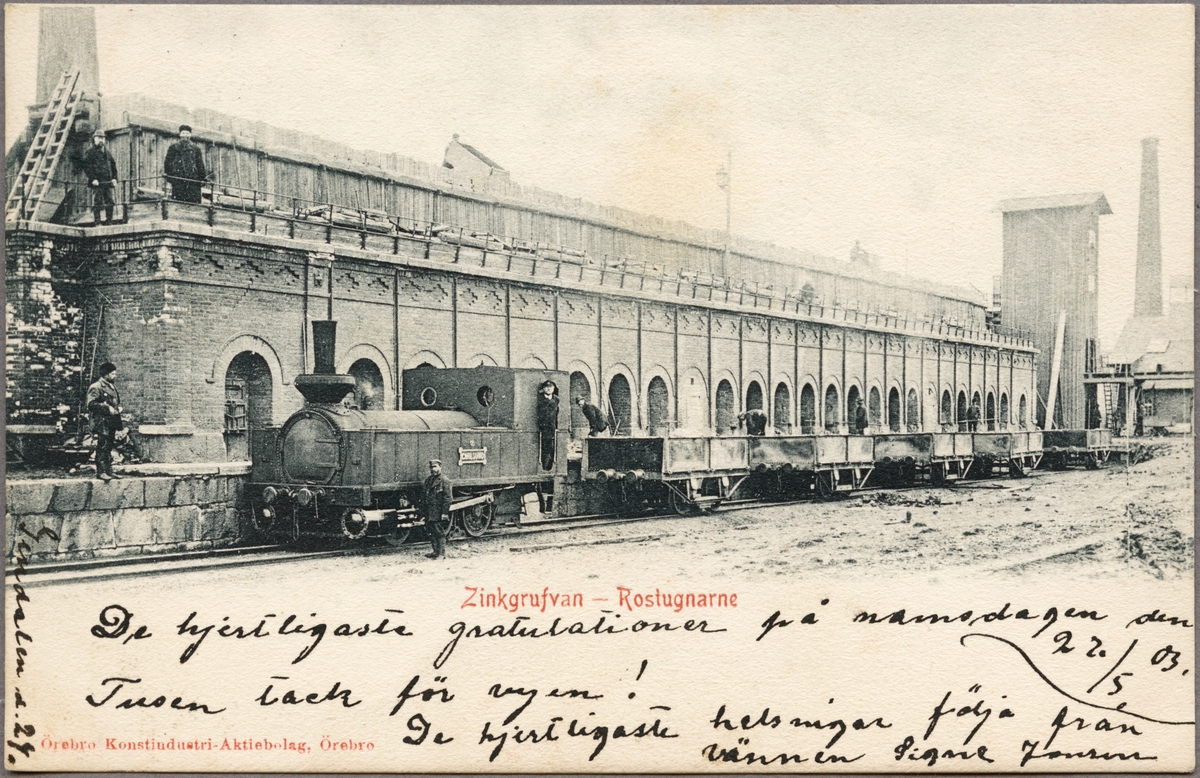 Zinkgrufvan — Rostugnarne
De hjertligaste gratulationer på namsdagen den
27/5 03.
Tusen tack för vyen!
De hjertligaste helsningar följa från
vännen Signe Jonsson
Örebro Konstindustri-Aktiebolag, Örebro
d. 24.